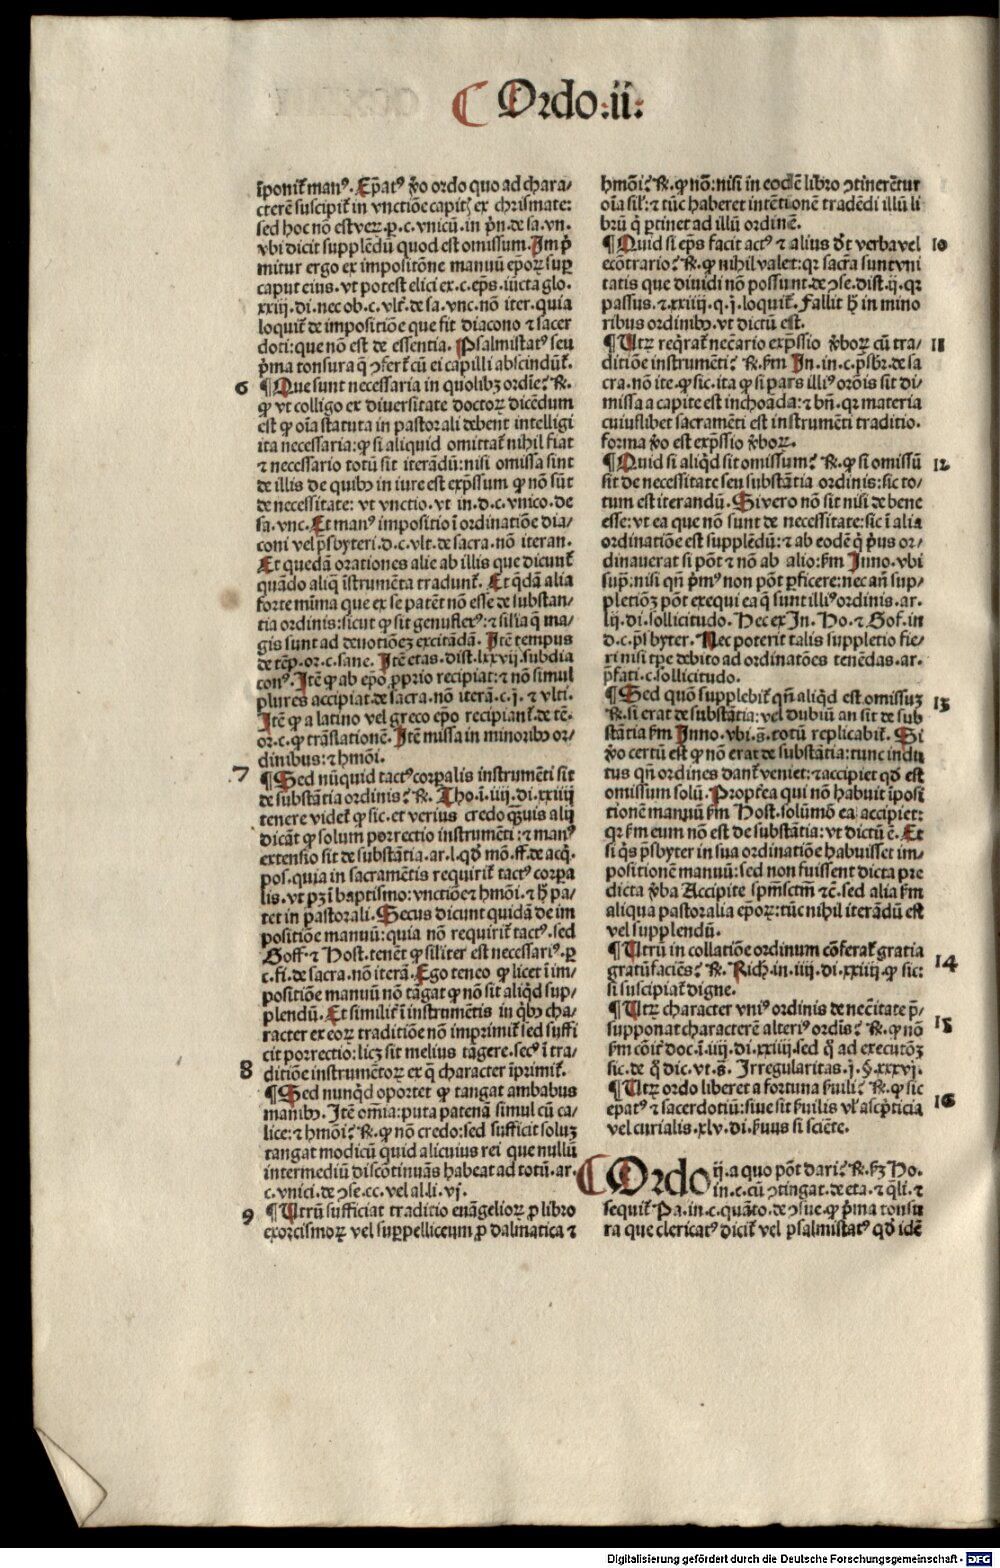 Ordo .ii.
īponit̄ manꝰ. Ep̄atꝰ v̄o ordo quo ad chara-
cterē suscipit̄ in vnctiōe capitꝭ ex chrismate:
sed hoc nō est veꝝ. ꝑ. c. vnicū. in pͥn. de sa. vn.
vbi dicit supplēdū quod est omissum. Im pͥ
mitur ergo ex impositōne manuū ep̄oꝝ suꝑ
caput eius. vt potest elici ex. c. ep̄s. iūcta glo.
xxiij. di. nec ob. c. vlt̄. de sa. vnc. nō iter. quia
loquit̄ de impositiōe que fit diacono ⁊ sacer
doti: que nō est de essentia. Psalmistatꝰ seu
pͥma tonsura q̄ ꝯfert̄ cū ei capilli abscindūt̄.
6 ¶ Que sunt necessaria in quolibꝫ ordīe? ℟.
ꝙ vt colligo ex diuersitate doctoꝝ dicēdum
est ꝙ oīa statuta in pastorali debent intelligi
ita necessaria: ꝙ si aliquid omittat̄ nihil fiat
⁊ necessario totū sit iterādū: nisi omissa sint
de illis de quibꝰ in iure est exp̄ssum ꝙ nō sūt
de necessitate: vt vnctio. vt in. d. c. vnico. de
sa. vnc. Et manꝰ impositio ī ordinatiōe dia-
coni vel p̄sbyteri. d. c. vlt. de sacra. nō iteran.
Et quedā orationes alie ab illis que dicunt̄
quādo aliq̄ īstrumēta tradunt̄. Et q̄dā alia
forte mīma que ex se patēt nō esse de substan-
tia ordinis: sicut ꝙ sit genuflexꝰ: ⁊ silīa q̄ ma-
gis sunt ad deuotiōeꝫ excitādā. Itē tempus
de tēp. or. c. sane. Itē etas. dist. lxxvij. subdia
conꝰ. Itē ꝙ ab ep̄o ꝓprio recipiat: ⁊ nō simul
plures accipiat. de sacra. nō iterā. c. j. ⁊ vlti.
Itē ꝙ a latino vel greco ep̄o recipiant̄. de tē.
or. c. ꝙ trāslationē. Itē missa in minoribꝰ or-
dinibus: ⁊ hmōi.
7 ¶ Sed nūquid tactꝰ corꝑalis instrumēti sit
de substātia ordinis? ℟. Tho. ī. iiij. di. xxiiij
tenere videt̄ ꝙ sic. et verius credo q̄uis alij
dicāt ꝙ solum porrectio instrumēti: ⁊ manꝰ
extensio sit de substātia. ar. l. qd̄ mō. ff. de acq̄.
pos. quia in sacramētis requirit̄ tactꝰ corpa
lis. vt pꝫ ī baptismo: vnctiōe ⁊ hmōi. ⁊ ħ pa-
tet in pastorali. Secus dicunt quidā de im
positiōe manuū: quia nō requirit̄ tactꝰ. sed
Goff. ⁊ Host. tenēt ꝙ siliter est necessariꝰ. ꝑ
c. fi. de sacra. nō iterā. Ego teneo ꝙ licet ī im-
positiōe manuū nō tāgat ꝙ nō sit aliq̄d sup-
plendū. Et similit̄ ī instrumētis in q̄bꝰ cha-
racter ex eoꝝ traditiōe nō imprimit̄ sed suffi
cit porrectio: licꝫ sit melius tāgere. secꝰ ī tra-
8 ditiōe instrumētoꝝ ex q̄ character īprimit̄.
¶ Sed nunqͥd oportet ꝙ tangat ambabus
manibꝰ. Itē om̄ia: puta patenā simul cū ca-
lice: ⁊ hmōi? ℟. ꝙ nō credo: sed sufficit soluꝫ
tangat modicū quid alicuius rei que nullū
intermediū discōtinuās habeat ad totū. ar.
c. vnici. de ꝯse. ec. vel al. li. vj.
9 ¶ Utrū sufficiat traditio euāgelioꝝ ꝓ libro
exorcismoꝝ vel suꝑpelliceum ꝓ dalmatica ⁊
hmōi? ℟. ꝙ nō: nisi in eodē libro ꝯtinerētur
oīa sil̓: ⁊ tūc haberet intētionē tradēdi illū li
brū q̄ ꝑtinet ad illū ordinē.
¶ Quid si ep̄s facit actꝰ ⁊ alius dt̄ verba vel 10
ecōtrario? ℟. ꝙ nihil valet: qꝛ sacr̄a sunt vni
tatis que diuidi nō possunt. de ꝯse. dist. ij. qꝛ
passus. ⁊. xxiiij. q. j. loquit̄. Fallit ħ in mino
ribus ordinibꝰ. vt dictū est.
¶ Utꝝ reqͥrat̄ necario exp̄ssio v̄boꝝ cū tra- 11
ditiōe instrumēti? ℟. ẜm In. in. c. p̄sbr̄. de sa
cra. nō ite. ꝙ sic. ita ꝙ si pars illiꝰ orōis sit di-
missa a capite est inchoāda: ⁊ bn̄. qꝛ materia
cuiuslibet sacramēti est instrumēti traditio.
forma v̄o est exp̄ssio v̄boꝝ.
¶ Quid si aliq̄d sit omissum? ℟. ꝙ si omissū 12
sit de necessitate seu substātia ordinis: sic to-
tum est iterandū. Si vero nō sit nisi de bene
esse: vt ea que nō sunt de necessitate: sic ī alia
ordinatiōe est supplēdū: ⁊ ab eodē q̄ pͥus or-
dinauerat si pōt ⁊ nō ab alio: ẜm Inno. vbi
supͣ: nisi qn̄ pͥmꝰ non pōt ꝑficere: nec an̄ sup-
pletiōꝫ pōt exequi ea q̄ sunt illiꝰ ordinis. ar.
lij. di. sollicitudo. Hec ex In. Ho. ⁊ Gof. in
d. c. p̄sbyter. Nec poterit talis suppletio fie-
ri nisi tꝑe debito ad ordinatōes tenēdas. ar.
p̄fati. c. sollicitudo.
¶ Sed quō supplebit̄ qn̄ aliq̄d est omissuꝫ 13
℟. si erat de substātia: vel dubiū an sit de sub
stātia ẜm Inno. vbi. s̄. totū replicabit̄. Si
v̄o certū est ꝙ nō erat de substātia: tunc indu
tus qn̄ ordines dant̄ veniet: ⁊ accipiet qd̄ est
omissum solū. Propt̄ea qui nō habuit īposi
tionē manuū ẜm Host. solūmō ea accipiet:
qꝛ ẜm eum nō est de substātia: vt dictū ē. Et
si qͥs p̄sbyter in sua ordinatiōe habuisset im-
positionē manuū: sed non fuissent dicta pre
dicta v̄ba Accipite spm̄sctm̄ ⁊c̄. sed alia ẜm
aliqua pastoralia ep̄oꝝ: tūc nihil iterādū est
vel supplendū.
¶ Utrū in collatiōe ordinum cōferat̄ gratia 14
gratūfaciēs? ℟. Rich. in. iiij. di. xxiiij. ꝙ sic:
si suscipiat̄ digne.
¶ Utꝝ character vniꝰ ordinis de necītate p̄- 15
supponat characterē alteriꝰ ordīs? ℟. ꝙ nō
ẜm cōit̄ doc. ī. iiij. di. xxiiij. sed q̄ ad executōꝫ
sic. de q̄ dic. vt. s̄. Irregularitas. j. §. xxxvj.
¶ Utꝝ ordo liberet a fortuna ẜuili? ℟. ꝙ sic 16
epatꝰ ⁊ sacerdotiū: siue sit ẜuilis vl̓ ascͥpticia
vel curialis. xlv. di. ẜuus si sciēte.
Ordo ij. a quo pōt dari? ℟. ẜꝫ Ho.
in. c. cū ꝯtingat. de eta. ⁊ q̄li. ⁊
sequit̄ Pa. in. c. quāto. de ꝯsue. ꝙ pͥma tonsu
ra que clericatꝰ dicit̄ vel psalmistatꝰ qd̄ idē
Digitalisierung gefördert durch die Deutsche Forschungsgemeinschaft - DFG